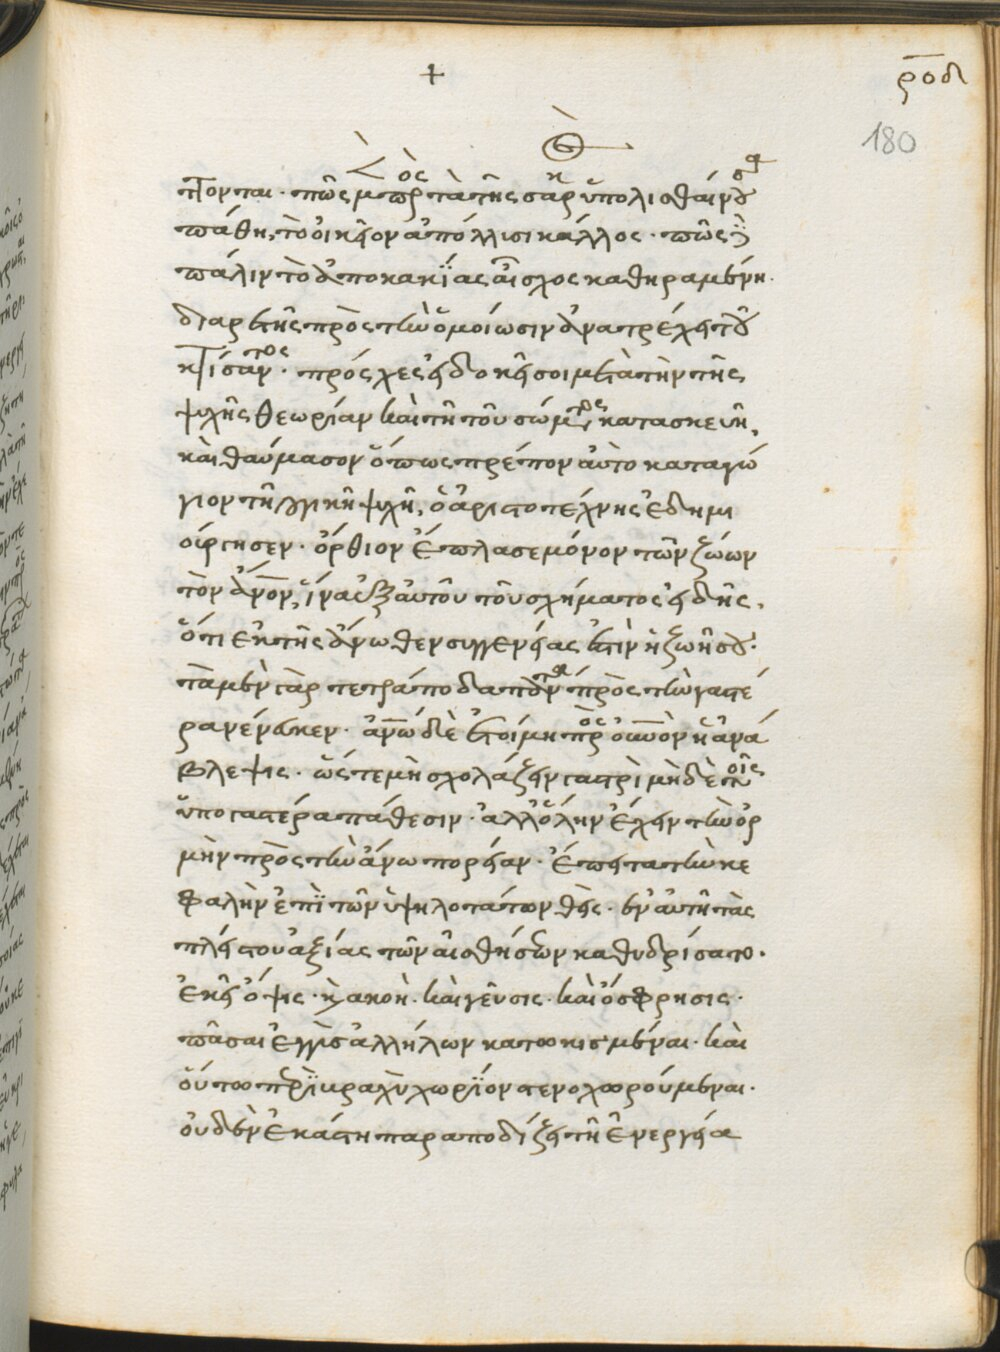 +
ροδ
180
πτονται · πῶς μ πρὸς τὰ τῆς σαρκὸς ὑπολισθαίνουσα
πάθη, τὸ οἰκεῖον ἀπόλλισι κάλλος · πῶς δὲ
πάλιν τὸ ἀπὸ κακΐας αἶσχος καθηραμένη ·
διαρετῆς πρὸς τὴν ὁμοίωσιν ἀνατρέχει τοῦ
κτίσαντος · πρόσχες εἰ δοκεῖ σοι μετὰ τὴν τῆς
ψυχῆς θεωρίαν καὶ τῆ τοῦ σώματος κατασκευῆ,
καὶ θαύμασον ὅπως πρέπον αὐτὸ καταγώ
γιον τῆ λογικῆ ψυχῆ, ὁ ἀριστοτέχνης ἐδημι
ούργησεν · ὄρθιον ἔπλασε μόνον τῶν ζώων
τὸν ἄνον, ἵνα ἐξ αὐτοῦ τοῦ σχήματος εἰδῆς,
ὅτι ἐκ τῆς ἄνωθεν συγγενείας ἐστὶν ἡ ζωή σου ·
τὰ μὲν γὰρ τετράποδα πάντα πρὸς τὴν γαστέ
ρα νένευκεν · ἀνω δὲ ἑτοίμη πρὸς οὐνὸν ἡ ἀνά
βλεψις · ὥστε μὴ σχολάζειν γαστρὶ μηδὲ τοῖς
ὑπογαστέρα πάθεσιν · ἀλλ᾽ ὅλην ἔχειν τὴν ὁρ
μὴν πρὸς τὴν ἄνω πορείαν · ἔπειτα τὴν κε
φαλὴν ἐπῒ τῶν ὑψηλοτάτων θεὶς · ἐν αὐτῆ τὰς
πλείστου ἀξίας τῶν αἰσθήσεων καθιδρύσατο ·
ἐκεῖ ὄψις · καὶ ἀκοὴ · καὶ γεῦσις · καὶ ὄσφρησις ·
πᾶσαι ἐγγὺς ἀλλήλων κατωκισμέναι · καὶ
οὕτω περῒ βραχὺ χωρΐον στενοχωρούμεναι ·
οὐδὲν ἑκάστη παραποδίζει τῆ ἐνεργεία